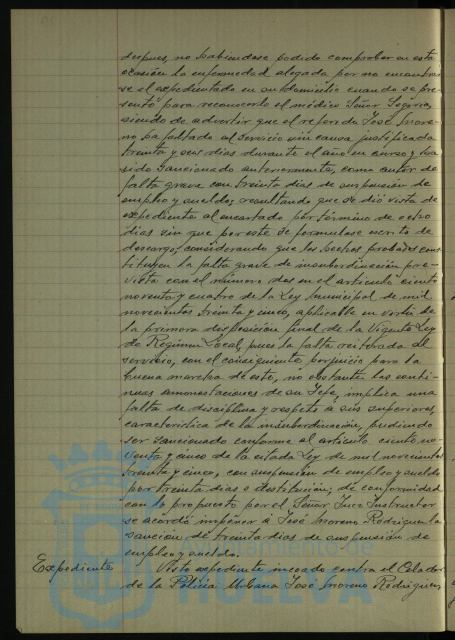 despues, no habiendose podido comprobar en esta
ocasión la enfermedad alegada por no encontrar
se el expedientado en su domicilio cuando se pre-
sentó para reconocerlo el médico Señor
siendo de advertir que el referido José More-
no ha faltado al servicio sin causa justificada
treinta y seis dias durante el año en curso y ha
sido sancionado anteriormente, como autor de
falta grave con treinta dias de suspensión de
empleo y sueldo; resultando que se dió vista de
expediente al encartado por término de ocho
dias sin que por este se formulase escrito de
descargo; considerando que los hechos probados cons
tituyen la falta grave de insubordinación pre-
vista con el número dos en el articulo ciento
noventa y cuatro de la Ley Municipal de mil
novecientos treinta y cinco, aplicable en virtud de
la primera disposición final de la Vigente Ley
de Regimen Local, pues la falta reiterada al
servicio, con el consiguiente perjuicio para la
buena marcha de este, no obstante las conti-
nuas amonestaciones de su Jefe, implica una
falta de disciplina y respeto a sus superiores,
caracteristica de la insubordinación, pudiendo
ser sancionado conforme al articulo ciento no-
venta y cinco de la citada Ley de mil novecientos
treinta y cinco, con suspensión de empleo y sueldo
por treinta dias o destitución; de conformidad
con lo propuesto por el Señor Juez Instructor
se acordó imponer a José Moreno Rodriguez la
sanción de treinta dias de suspensión de
empleo y sueldo.
Expediente Visto expediente incoado contra el Celador
de la Policia Urbana José Moreno Rodriguez,
Ayuntamiento de
HUELVA